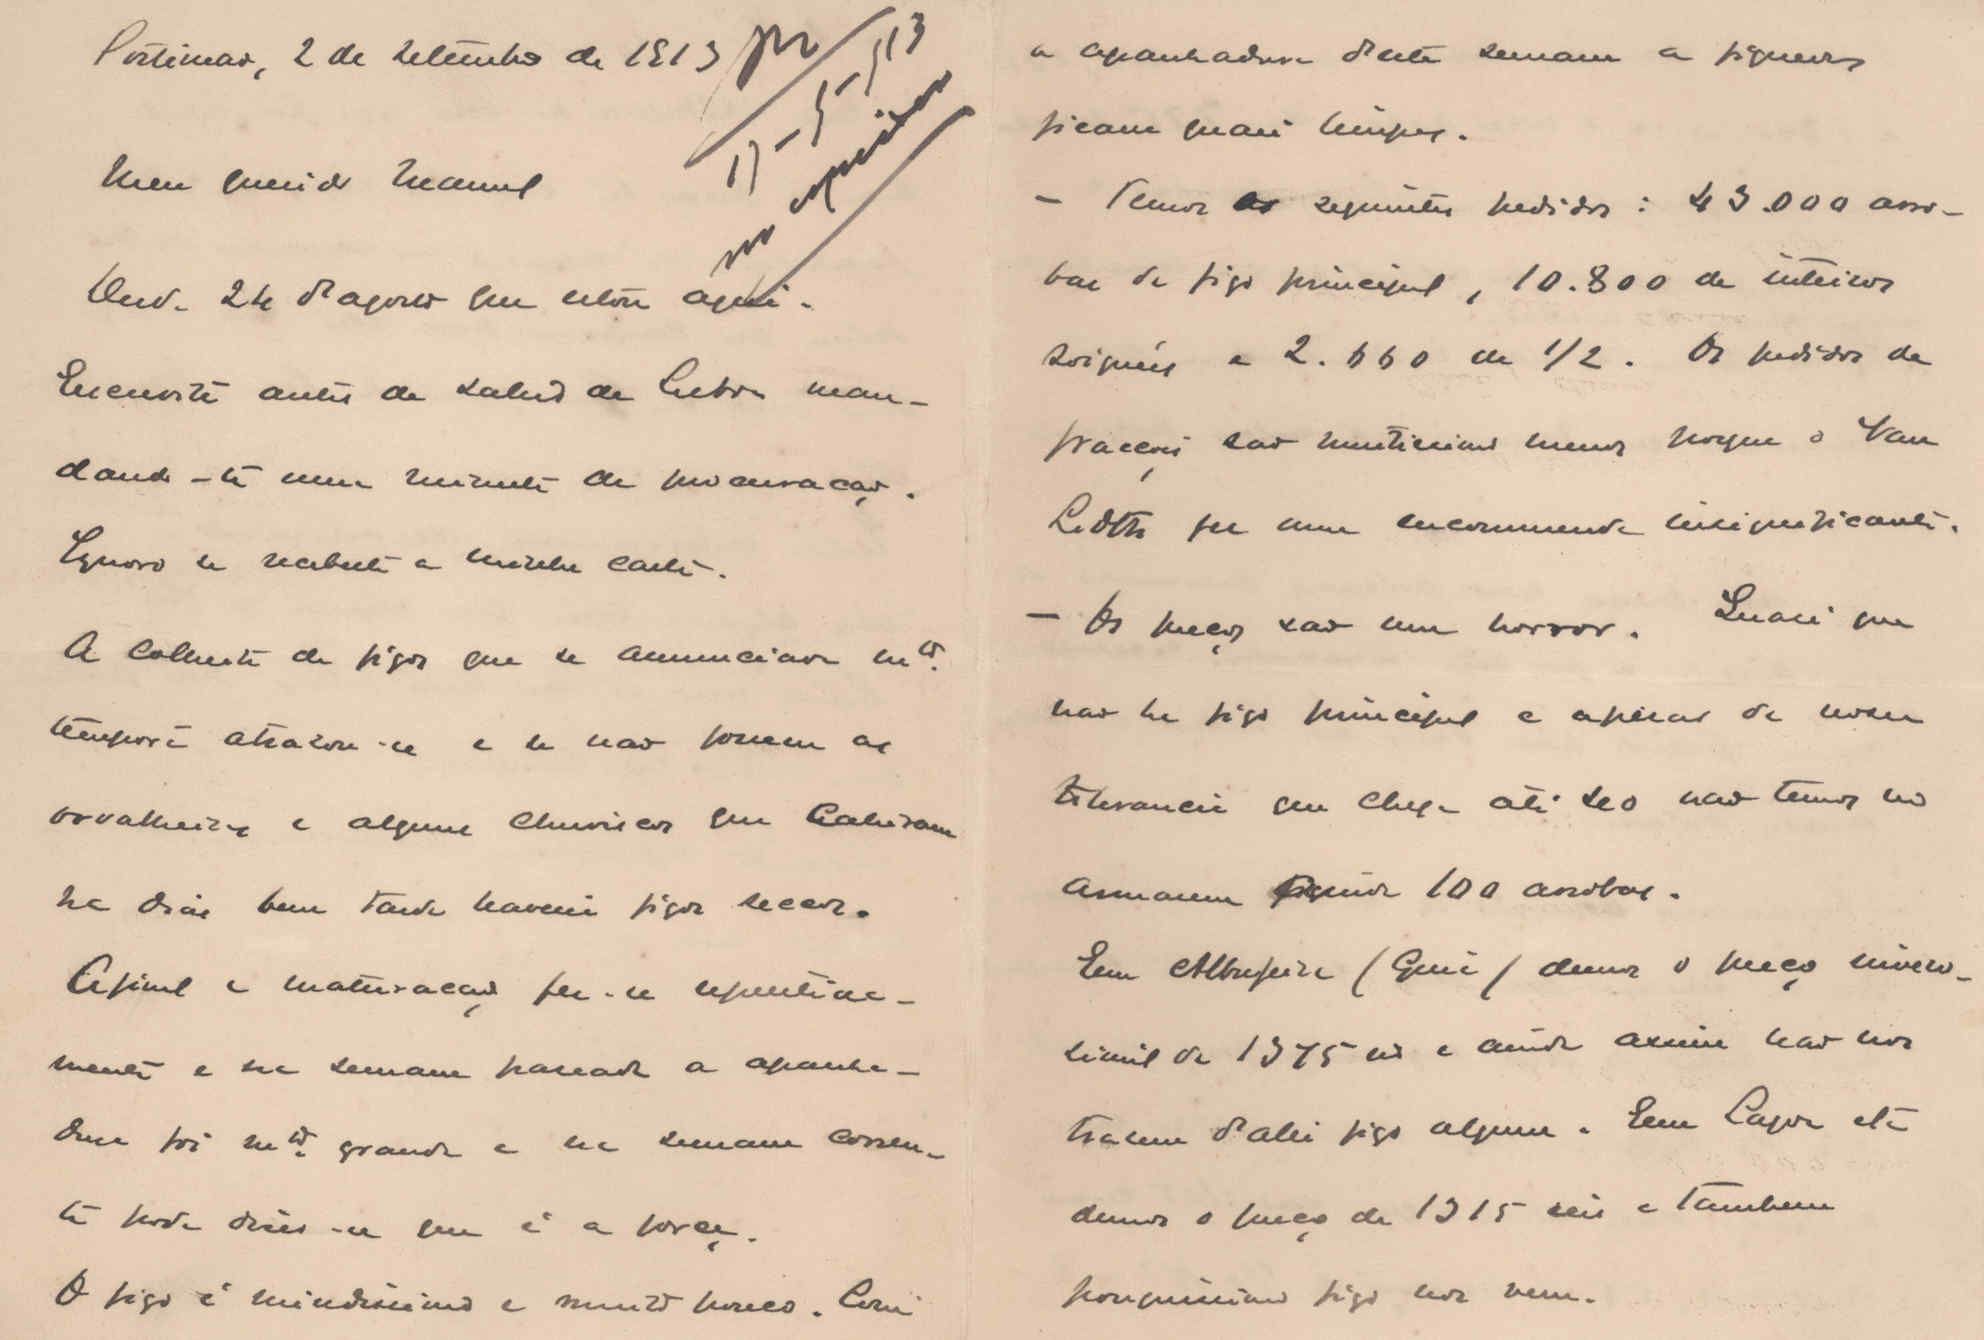 Portimão, 2 de Setembro de 1913
17-9-913
Meu querido Manuel
Desde 24 d'agosto que estou aqui.
Escrevi-te antes de sahir de Lisboa man-
dando-te uma minuta de procuração.
Ignoro se recebeste a minha carta.
A colheita de figos que se annunciava mto.
temporã atrazou-se e se não fossem as
orvalheiras e alguns chuviscos que cahiram
ha dias bem tarde haveria figos seccos.
Afinal a maturação fez-se repentina-
mente e na semana passada a apanha-
dura foi mto. grande e na semana corren-
te pode dizer-se que é a força.
O figo é miudissimo e muito pouco. Com
a apanhadura d'esta semana as figueiras
ficam quasi limpas.
- Temos os seguintes pedidos: 43.000 arro-
bas de figo principal, 10.800 de inteiros
soignés e 2.660 de 1/2. Os pedidos de
fracções são muitissimo menos porque o Van
fez uma encommenda insignificante.
- Os preços são um horror. Quasi que
não ha figo principal e apesar da nossa
tolerancia que chega até 80 não temos no
armazem ainda 100 arrobas.
Em Albufeira (Guia) demos o preço invero-
simil de 1375 rs e ainda assim não nos
trazem d'ali figo algum. Em Lagoa até
demos o preço de 1315 reis e tambem
pouquissimo figo nos vem.